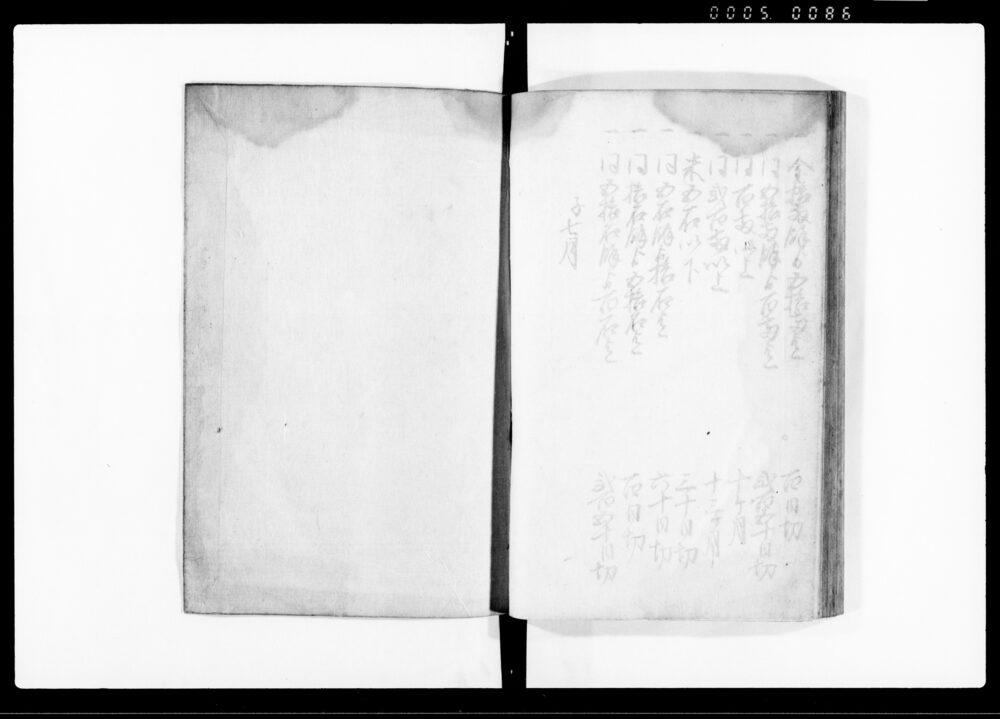 0005. 0086
一 金拾両余ゟ五拾両迄 百日切
一 同五拾両余ゟ百両迄 弐百四十日切
一 同百両以上 十ヶ月
一 同弐百両以上 十三ヶ月
一 米五石以下 三十日切
一 同五石余ゟ拾石迄 六十日切
一 同拾石余ゟ五拾石迄 百日切
一 同五拾石余ゟ百石迄 弐百四十日切
子七月